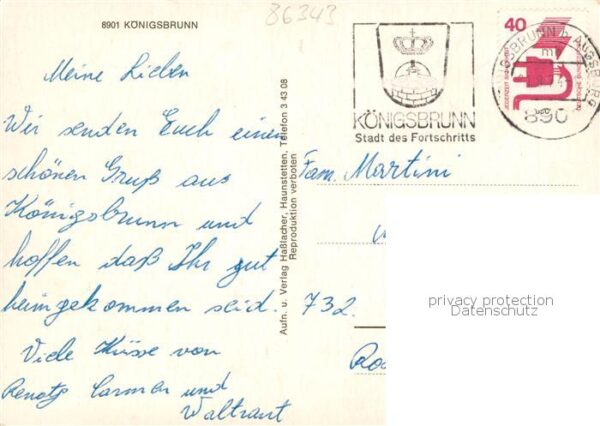 8901 KÖNIGSBRUNN
86343
Meine Lieben
Wir senden Euch einen
schönen Gruß aus
Königsbrunn und
hoffen daß Ihr gut
heimgekommen seid.
Viele Küsse von
Renate Carmen und
Waltraut
Aufn. u. Verlag Haßlacher, Haunstetten, Telefon 3 43 08
Reproduktion verboten
KÖNIGSBRUNN
Stadt des Fortschritts
40
890
Fam. Martini
732.
privacy protection
Datenschutz